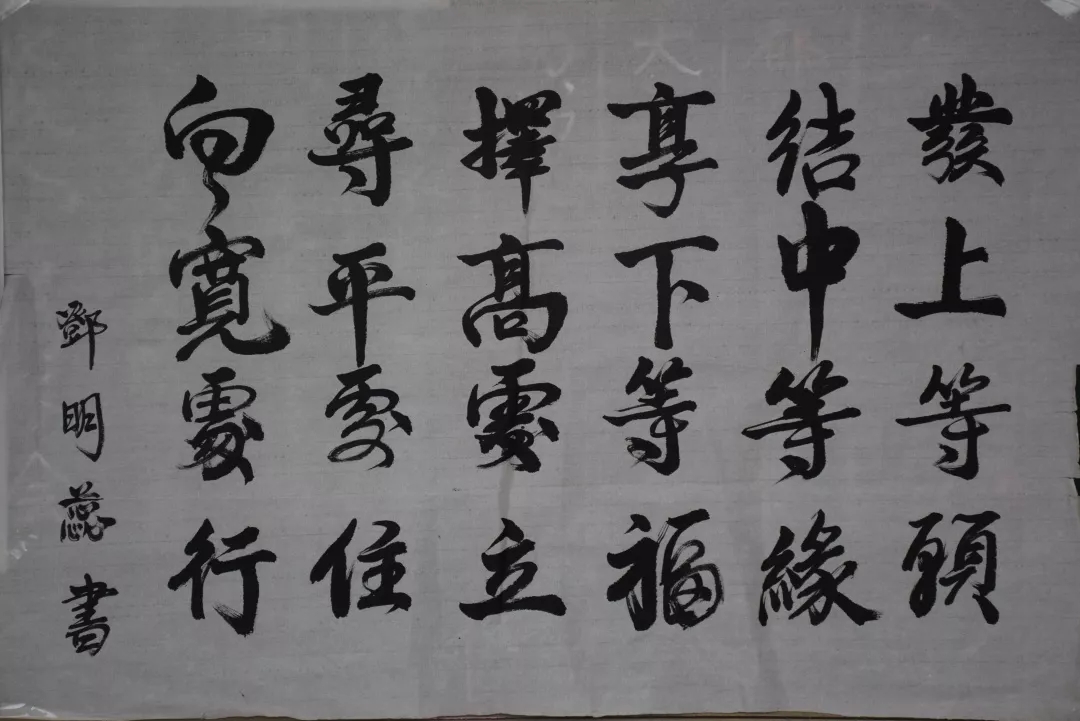 發上等願
結中等緣
享下等福
擇高處立
尋平處住
向寬處行
鄧明蕊書